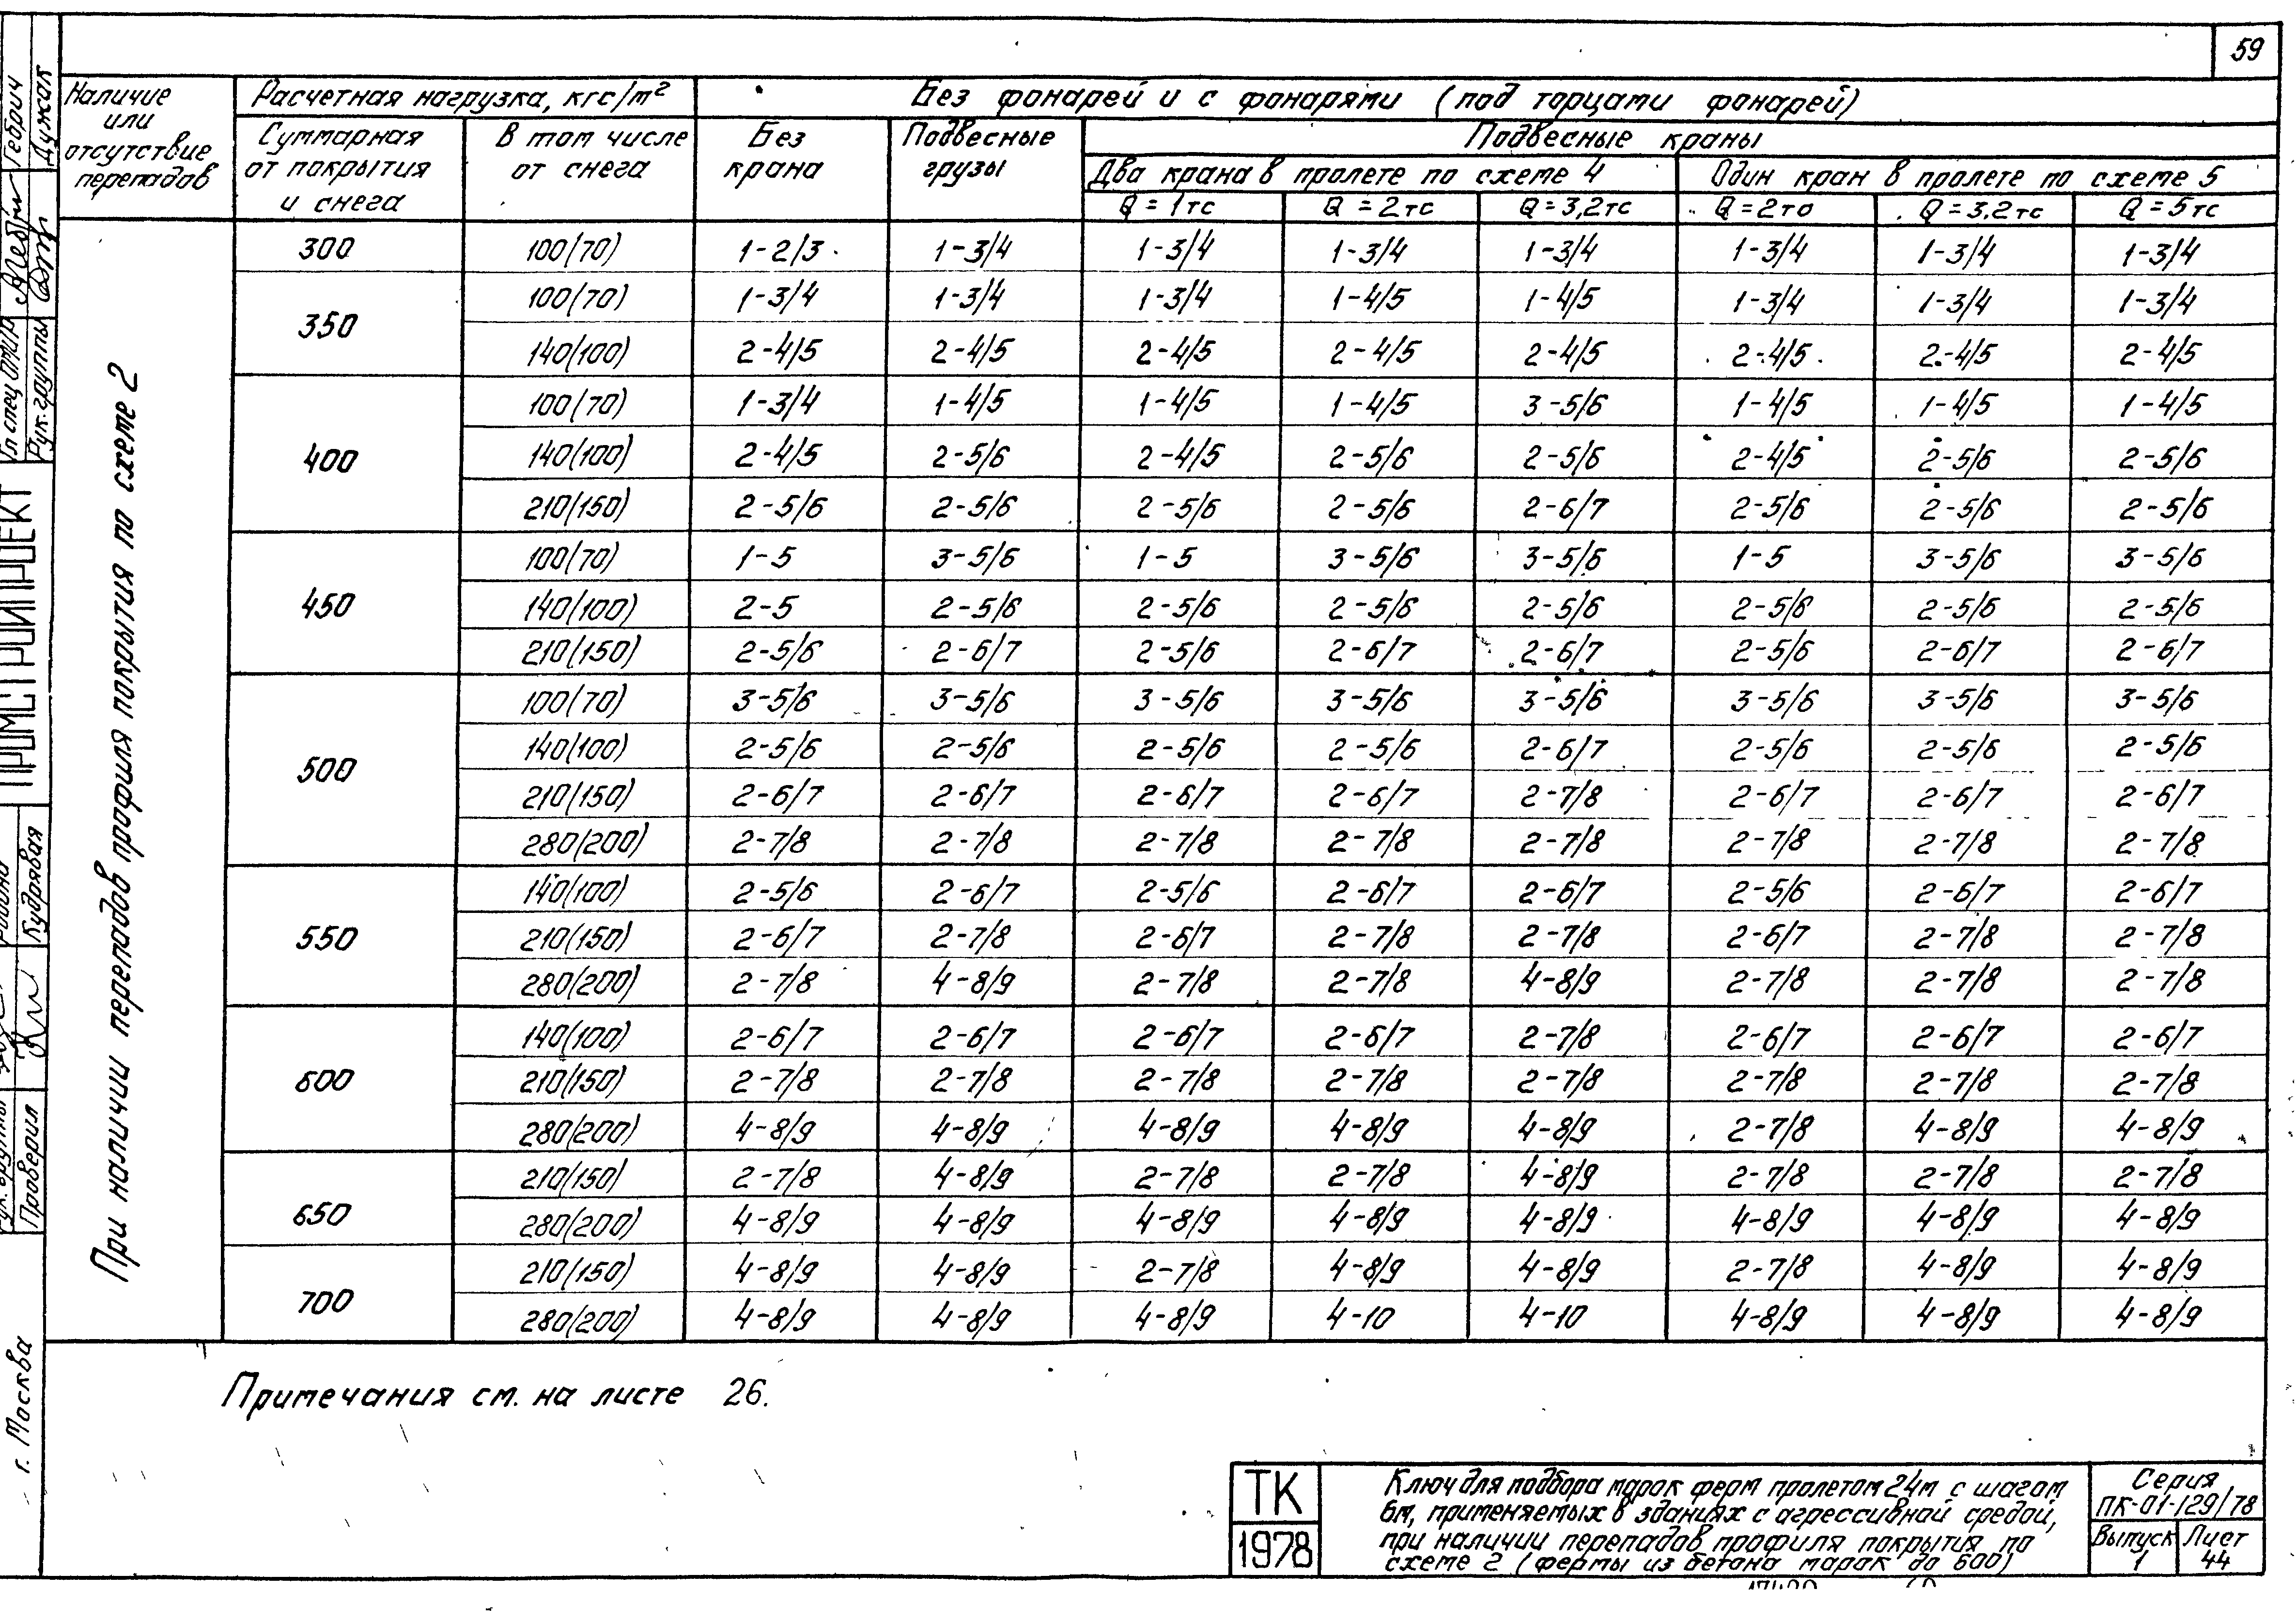 59
Наличие или отсутствие перепадов
Расчетная нагрузка, кгс/м²
Без фонарей и с фонарями (под торцами фонарей)
Суммарная от покрытия и снега
В том числе от снега
Без крана
Подвесные грузы
Подвесные краны
Два крана в пролете по схеме 4
Один кран в пролете по схеме 5
Q = 1тс Q = 2тс Q = 3,2тс Q = 2то Q = 3.2тс Q = 5тс
При наличии перепадов профиля покрытия по схеме 2
300 100(70) 1-2/3 1-3/4 1-3/4 1-3/4 1-3/4 1-3/4 1-3/4 1-3/4
350 100(70) 1-3/4 1-3/4 1-3/4 1-4/5 1-4/5 1-3/4 1-3/4 1-3/4
140(100) 2-4/5 2-4/5 2-4/5 2-4/5 2-4/5 2-4/5 2-4/5 2-4/5
400 100(70) 1-3/4 1-4/5 1-4/5 1-4/5 3-5/6 1-4/5 1-4/5 1-4/5
140(100) 2-4/5 2-5/6 2-4/5 2-5/6 2-5/6 2-4/5 2-5/6 2-5/6
210(150) 2-5/6 2-5/6 2-5/6 2-5/6 2-6/7 2-5/6 2-5/6 2-5/6
450 100(70) 1-5 3-5/6 1-5 3-5/6 3-5/6 1-5 3-5/6 3-5/6
140(100) 2-5 2-5/6 2-5/6 2-5/6 2-5/6 2-5/6 2-5/6 2-5/6
210(150) 2-5/6 2-6/7 2-5/6 2-6/7 2-6/7 2-5/6 2-6/7 2-6/7
500 100(70) 3-5/6 3-5/6 3-5/6 3-5/6 3-5/6 3-5/6 3-5/6 3-5/6
140(100) 2-5/6 2-5/6 2-5/6 2-5/6 2-6/7 2-5/6 2-5/6 2-5/6
210(150) 2-6/7 2-6/7 2-6/7 2-6/7 2-7/8 2-6/7 2-6/7 2-6/7
280(200) 2-7/8 2-7/8 2-7/8 2-7/8 2-7/8 2-7/8 2-7/8 2-7/8
550 140(100) 2-5/6 2-6/7 2-5/6 2-6/7 2-6/7 2-5/6 2-6/7 2-6/7
210(150) 2-6/7 2-7/8 2-6/7 2-7/8 2-7/8 2-6/7 2-7/8 2-7/8
280(200) 2-7/8 4-8/9 2-7/8 2-7/8 4-8/9 2-7/8 2-7/8 2-7/8
600 140(100) 2-6/7 2-6/7 2-6/7 2-6/7 2-7/8 2-6/7 2-6/7 2-6/7
210(150) 2-7/8 2-7/8 2-7/8 2-7/8 2-7/8 2-7/8 2-7/8 2-7/8
280(200) 4-8/9 4-8/9 4-8/9 4-8/9 4-8/9 2-7/8 4-8/9 4-8/9
650 210(150) 2-7/8 4-8/9 2-7/8 2-7/8 4-8/9 2-7/8 2-7/8 2-7/8
280(200) 4-8/9 4-8/9 4-8/9 4-8/9 4-8/9 4-8/9 4-8/9 4-8/9
700 210(150) 4-8/9 4-8/9 2-7/8 4-8/9 4-8/9 2-7/8 4-8/9 4-8/9
280(200) 4-8/9 4-8/9 4-8/9 4-10 4-10 4-8/9 4-8/9 4-8/9
Примечания см. на листе 26.
ТК
1978
Ключ для подбора марок ферм пролетом 24м с шагом
6м, применяемых в зданиях с агрессивной средой,
при наличии перепадов профиля покрытия по
схеме 2 (фермы из бетона марок до 600)
Серия
ПК-01-129/78
Выпуск 1
Лист 44
Гебрич
Дужак
Рук. группы
ПРОМСТРОЙПРОЕКТ
Кудрявая
Проверил
г. Москва